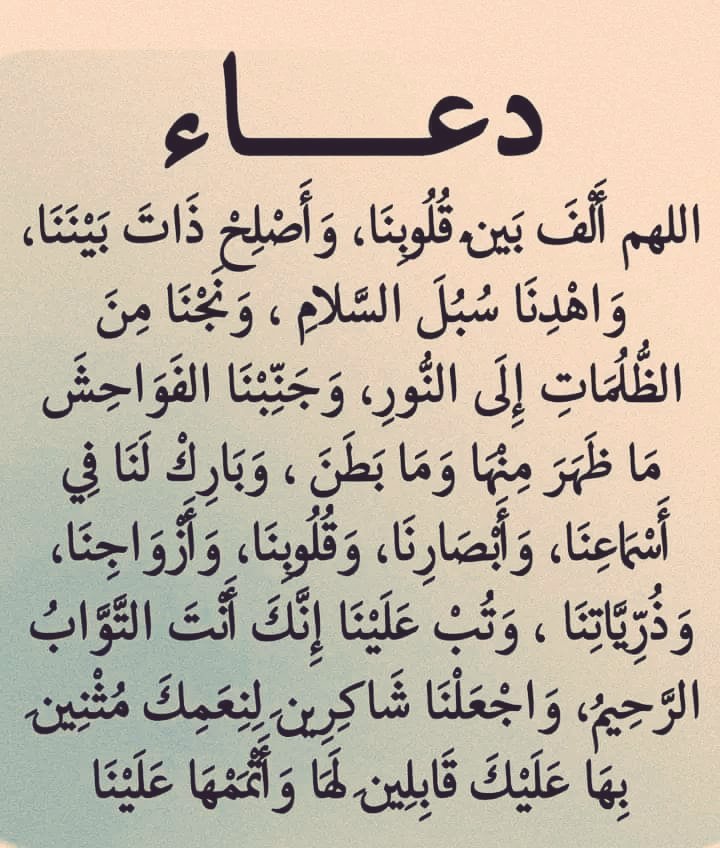 دعـــــاء
اللهم أَلْفَ بَين قُلُوبِنَا، وَأَصْلِحْ ذَاتَ بَيْنَنَا،
وَاهْدِنَا سُبُلَ السَّلامِ ، وَنَجْنَا مِنَ
الظُّلُمَاتِ إِلَى النُّورِ، وَجَنِّبْنَا الفَوَاحِشَ
مَا ظَهَرَ مِنْهَا وَمَا بَطَنَ ، وَبَارِكْ لَنَا فِي
أَسْمَاعِنَا، وَأَبْصَارِنَا، وَقُلُوبِنَا، وَأَزْوَاجِنَا،
وَذُرِّيَّاتِنَا ، وَتُبْ عَلَيْنَا إِنَّكَ أَنْتَ التَّوَّابُ
الرَّحِيمُ، وَاجْعَلْنَا شَاكِرِين لِنِعَمِكَ مُثْنِين
بِهَا عَلَيْكَ قَابِلِين لَهَا وَأَتْمَمْهَا عَلَيْنَا